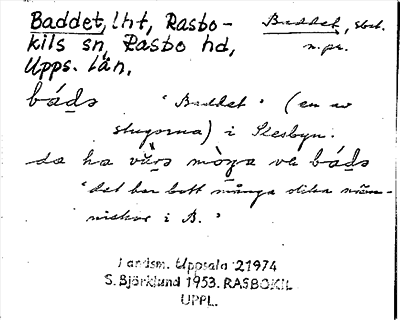 Baddet, lht, Rasbo-
kils sn, Rasbo hd,
Upps. län.
Baddet, sbst.
n. pr.
báds "Baddet" (en av
stugorna) i Stesbyn.
da ha vǡs mòga va báds
"det har bott många olika män-
niskor i B."
Landsm. Uppsala 21974
S. Björklund 1953. RASBOKIL
UPPL.